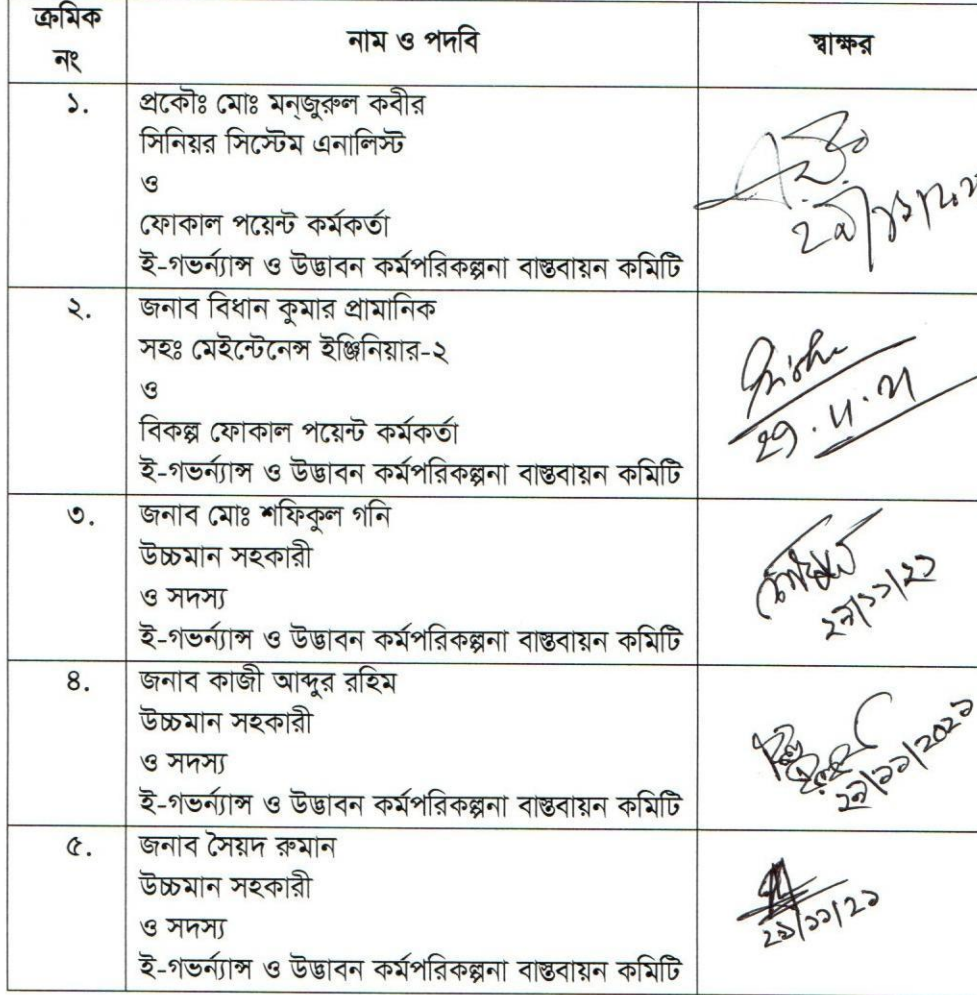 ক্রমিক
নং
নাম ও পদবি
স্বাক্ষর
১.
প্রকৌঃ মোঃ মন্‌জুরুল কবীর
সিনিয়র সিস্টেম এনালিস্ট
ও
ফোকাল পয়েন্ট কর্মকর্তা
ই-গভর্ন্যান্স ও উদ্ভাবন কর্মপরিকল্পনা বাস্তবায়ন কমিটি
২৯/১১/২০২১
২.
জনাব বিধান কুমার প্রামানিক
সহঃ মেইন্টেনেন্স ইঞ্জিনিয়ার-২
ও
বিকল্প ফোকাল পয়েন্ট কর্মকর্তা
ই-গভর্ন্যান্স ও উদ্ভাবন কর্মপরিকল্পনা বাস্তবায়ন কমিটি
29.11.21
৩.
জনাব মোঃ শফিকুল গনি
উচ্চমান সহকারী
ও সদস্য
ই-গভর্ন্যান্স ও উদ্ভাবন কর্মপরিকল্পনা বাস্তবায়ন কমিটি
২৯/১১/২১
৪.
জনাব কাজী আব্দুর রহিম
উচ্চমান সহকারী
ও সদস্য
ই-গভর্ন্যান্স ও উদ্ভাবন কর্মপরিকল্পনা বাস্তবায়ন কমিটি
২৯/১১/২০২১
৫.
জনাব সৈয়দ রুমান
উচ্চমান সহকারী
ও সদস্য
ই-গভর্ন্যান্স ও উদ্ভাবন কর্মপরিকল্পনা বাস্তবায়ন কমিটি
২৯/১১/২১